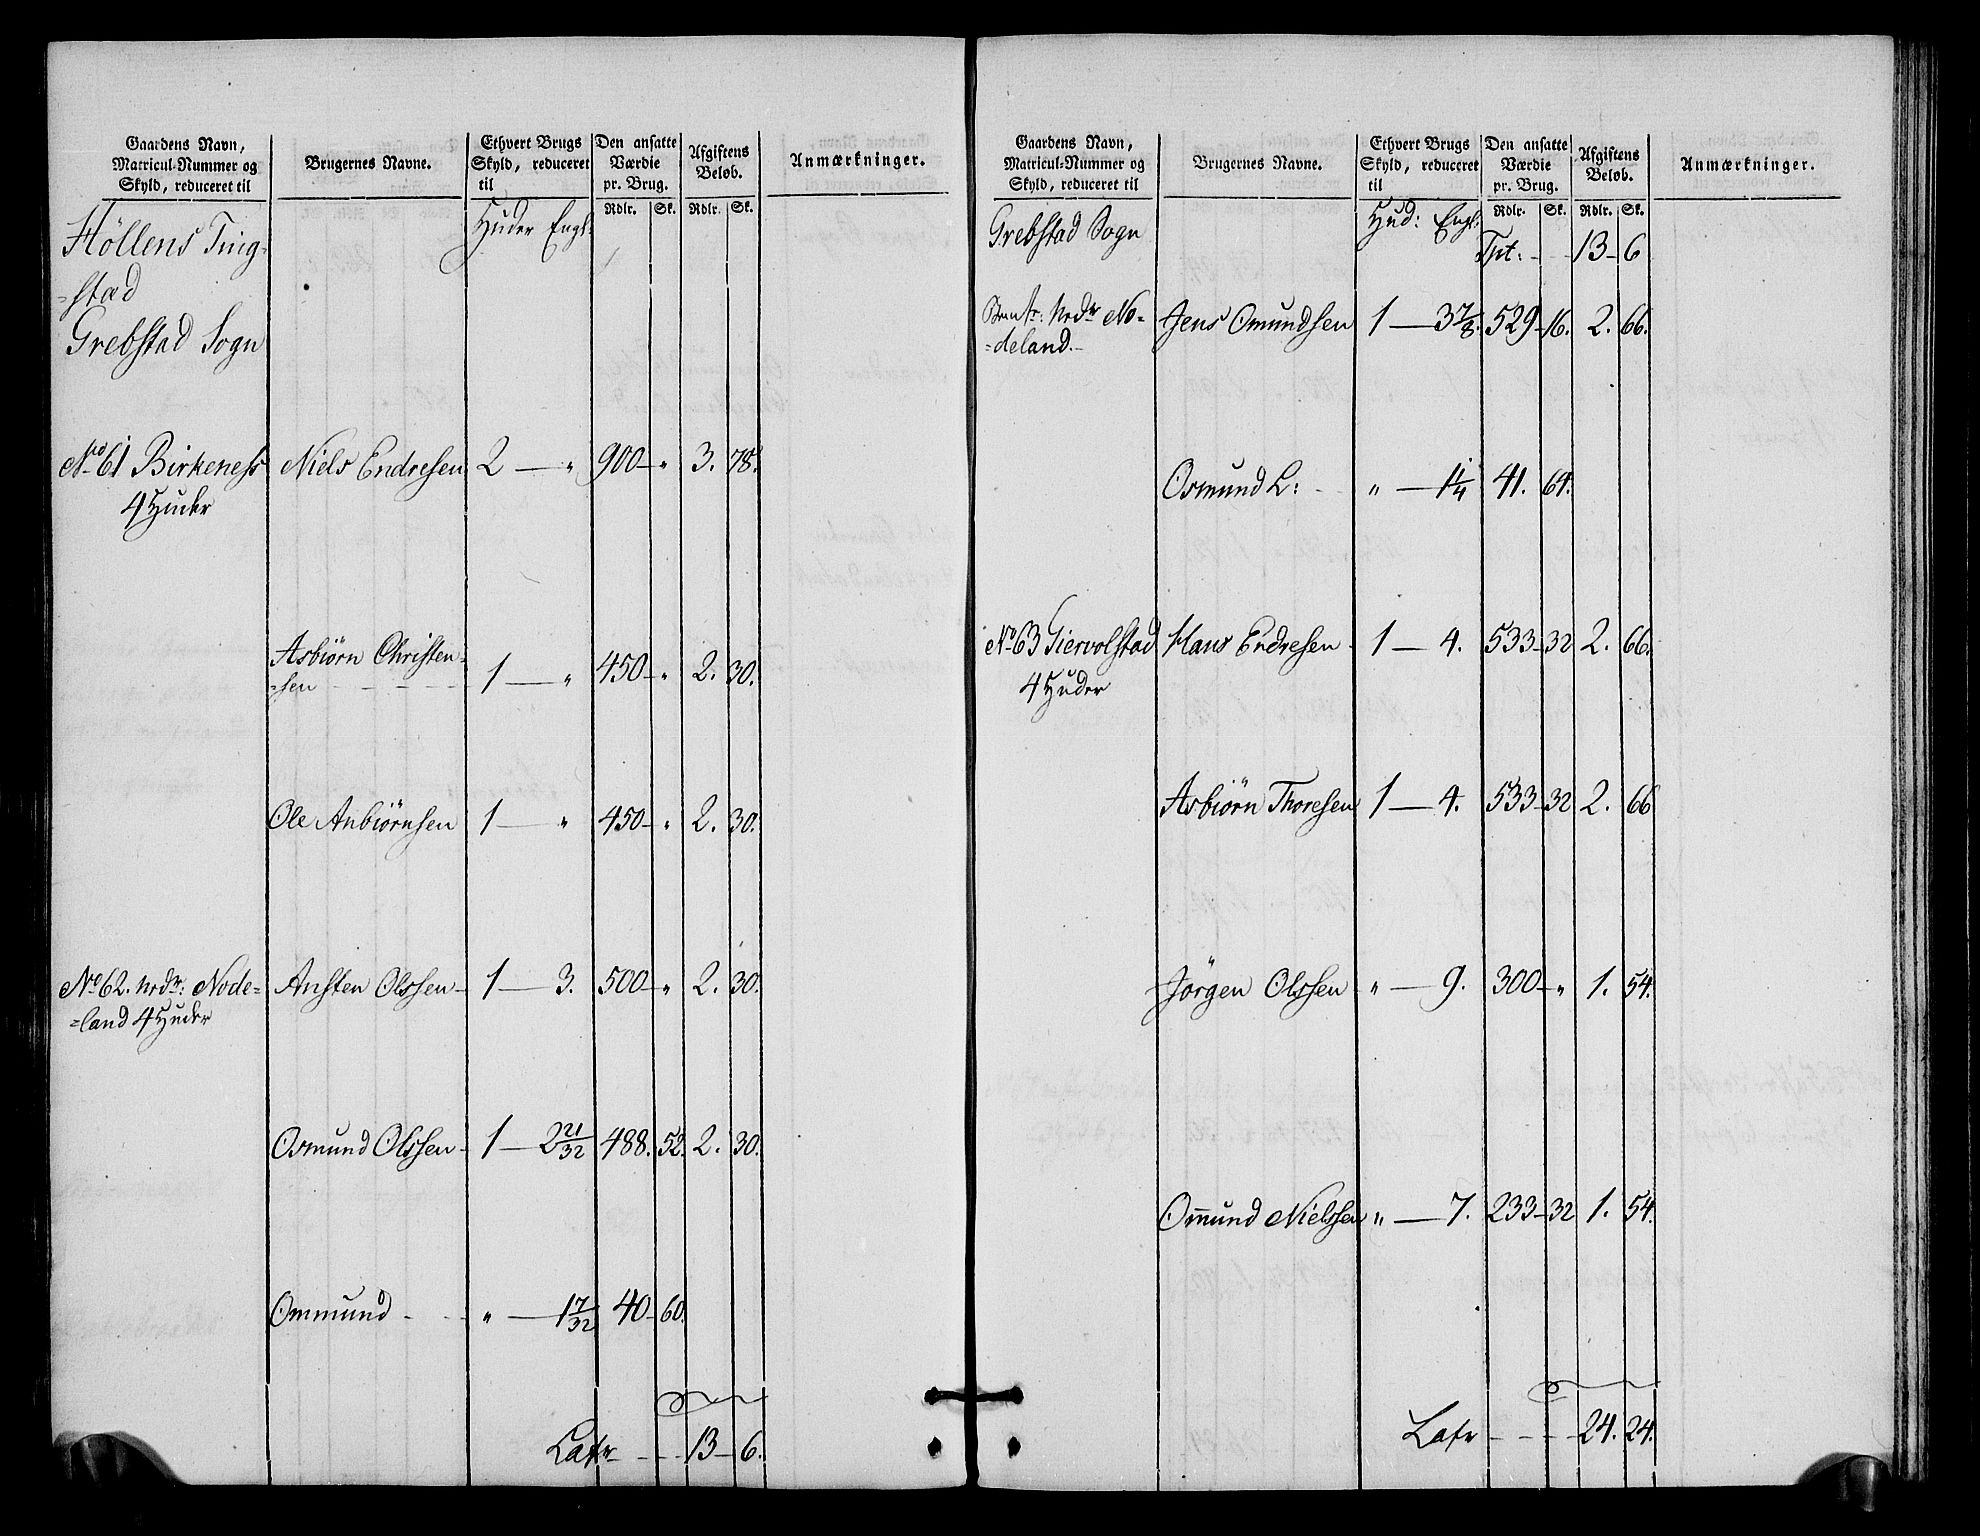 Gaardens Navn, Matricul-Nummer og Skyld, reduceret til | Brugernes Navne. | Ethvert Brugs Skyld, reduceret til | Den ansatte Værdie pr. Brug. | Afgiftens Beløb. | Anmærkninger.
Huder Engl: | Rdlr. | Sk. | Rdlr. | Sk.
Höllens Ting-
=stad
Grebstad Sogn
No 61 Birkeness | Niels Endresen | 2 — „ | 900 – „ | 3. 78.
4 Huder
Asbiörn Christen-
=sen - - - - | 1 — „ | 450 – „ | 2. 30.
Ole Anbiörnsen | 1 — „ | 450 – „ | 2. 30.
No 62. nedr: Node= | Ansten Olssen | 1 — 3. | 500 – „ | 2. 30.
=land 4 Huder
Osmund Olssen | 1 — 2 21/32 | 488. 52. | 2. 30.
Ommund - - | „ — 1 7/32 | 40 – 60.
Latr - - - 13 – 6.
Gaardens Navn, Matricul-Nummer og Skyld, reduceret til | Brugernes Navne. | Ethvert Brugs Skyld, reduceret til | Den ansatte Værdie pr. Brug. | Afgiftens Beløb. | Anmærkninger.
Hud: Engl: | Rdlr. | Sk. | Rdlr. | Sk.
Grebstad Sogn
Tpt: - - 13 – 6
nedr No- | Jens Omundsen | 1 — 3 7/8. | 529 – 16. | 2. 66.
=deland.
Osmund L: - - | „ — 1 1/4 | 41. 64.
No 63 Tiervolstad | Hans Endresen | 1 — 4. | 533 – 32 | 2. 66.
4 Huder
Asbiörn Thoresen | 1 — 4. | 533 – 32 | 2. 66
Jörgen Olssen | „ — 9. | 300 – „ | 1. 54.
Om̅und Nielssen | „ — 7. | 233 – 32 | 1. 54.
Latr - - - - 24. 24.